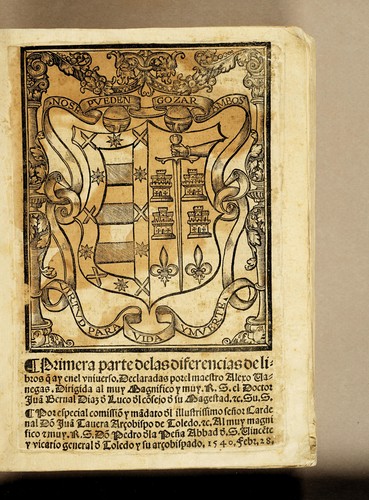 NO SE PVEDEN GOZAR AMBOS
VIRTVD PARA VIDA Y MVERTE
¶Primera parte de las diferencias de li-
bros q̃ ay enel vniuerso. Declaradas por el maestro Alexo Va-
negas. Dirigida al muy Magnifico y muy. R. S. el Doctor
Juã Bernal Diaz ð Luco ðl cõsejo ð su Magestad. ⁊c. Su. S.
¶Por especial comissiõ y mãdaro ðl illustrissimo señor Carde
nal Dõ Juã Tauera Arçobispo de Toledo. ⁊c. Al muy magni
fico ⁊ muy. R. S. Dõ Pedro ðla Peña Abbad ð. S. Vincẽte
y vicario general ð Toledo y su arçobispado. 1540. Febr. 28.